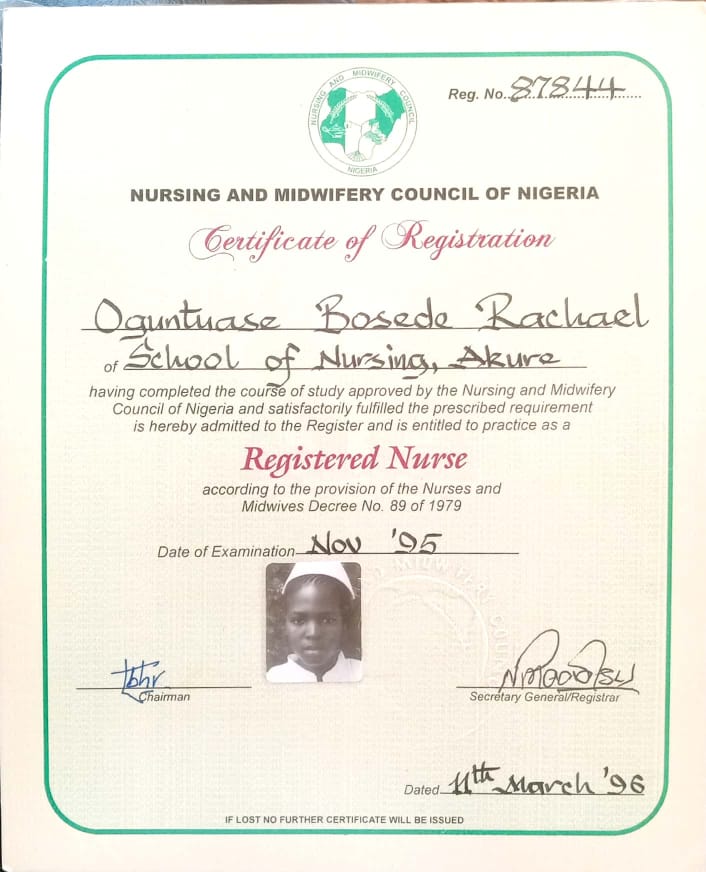 NURSING AND MIDWIFERY COUNCIL
NIGERIA
Reg. No. 87844
NURSING AND MIDWIFERY COUNCIL OF NIGERIA
Certificate of Registration
Oguntuase Bosede Rachael
of School of Nursing, Akure
having completed the course of study approved by the Nursing and Midwifery
Council of Nigeria and satisfactorily fulfilled the prescribed requirement
is hereby admitted to the Register and is entitled to practice as a
Registered Nurse
according to the provision of the Nurses and
Midwives Decree No. 89 of 1979
Date of Examination Nov '95
MIDWIFERY COUNCIL
Chairman
Secretary General/Registrar
Dated 11th March '96
IF LOST NO FURTHER CERTIFICATE WILL BE ISSUED